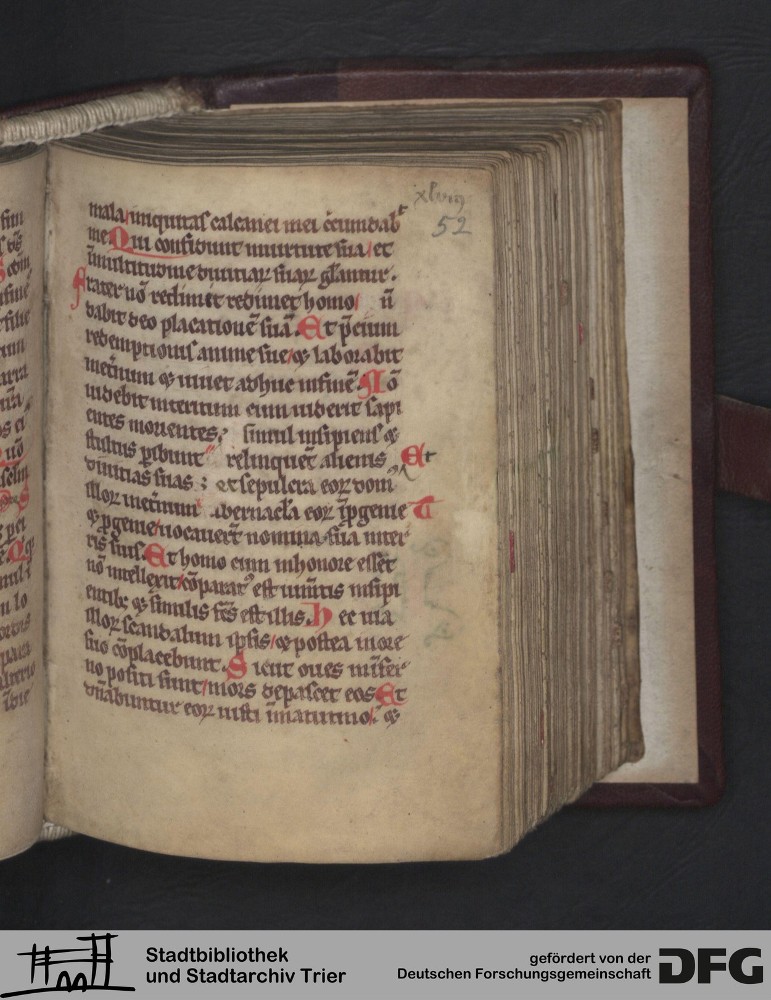 xlviij
52
mala/iniquitas calcanei mei ccumdabt
me. Qui confidunt in uirtute sua/et
i multitudine diuitiaꝝ suaꝝ gl̄antur.
Frater nō redimit redimet homo/ n̄
dabit deo placationē suā. Et p̄cium
redemptionis anime sue/⁊ laborabit
in et̄num ⁊ uiuet adhuc in finē. Nō
uidebit interitum cum uiderit sapi
entes morientes; simul insipiens ⁊
stultus ꝑibunt relinquēt alienis Et
diuitias suas ; et sepulcra eoꝝ dom
illoꝝ in et̄num abernacl̄a eoꝝ ī ꝓgenie T
⁊ ꝓgenie/uocauerūt nomina sua in ter
ris suis. Et homo cum in honore essēt
nō intellexit/cōparatꝰ est iumētis insipi
entibꝫ ⁊ similis fc̄s est illis. Hec uia
illoꝝ scandalum ipsis/⁊ postea in ore
suo cōplacebunt. Sicut oues in īfer
no positi sunt/mors depascet eos Et
dn̄abuntur eoꝝ iusti in matutino/ ⁊
Stadtbibliothek
und Stadtarchiv Trier
gefördert von der
Deutschen Forschungsgemeinschaft
DFG